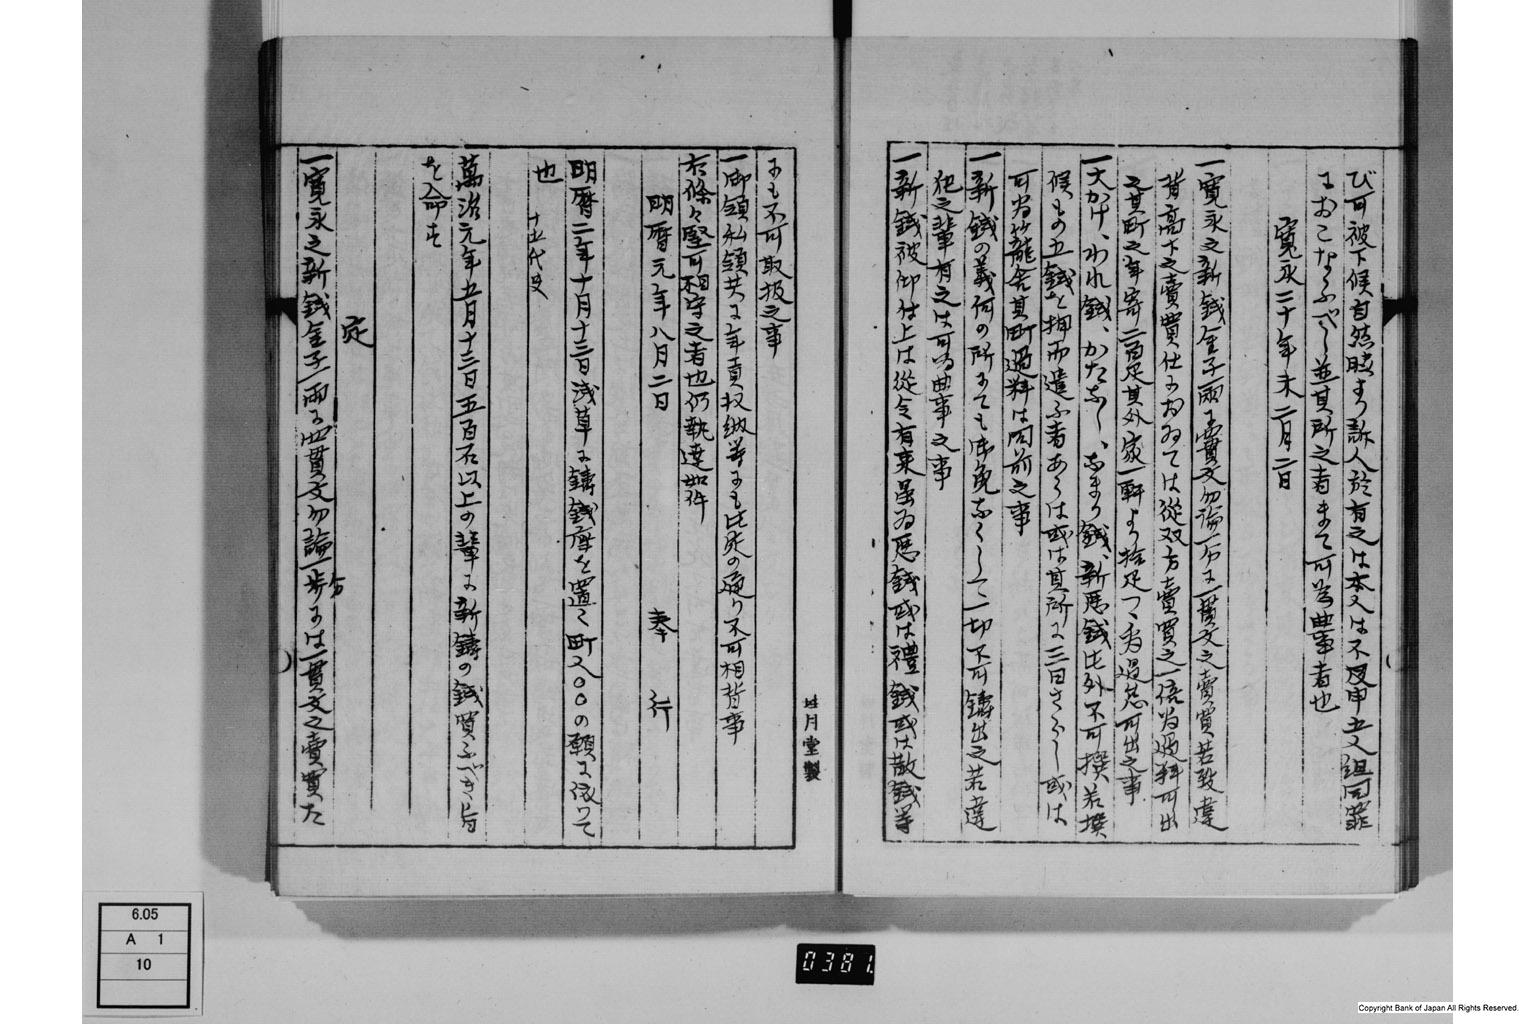 び可被下候自然脇より訴人於有之は本人は不及申五人組同罪
におこなふべし並其所之者まて可為曲事者也
寛永二十年未二月二日
一寛永之新錢金子一兩に四貫文勿論一分に一貫文之賣買若致違
背高下之賣買仕におゐては從双方賣買之一倍為過料可出
之其町之年寄二百疋其外家一軒より拾疋つゝ為過怠可出之事
一大かけ、われ錢、かたなし、なまり錢、新惡錢此外不可撰若撰
候もの又錢を押而遣ふ者あらは或は其所に三日さらし或は
可為籠舎其町過料は同前之事
一新錢の義何の所にても御免なくして一切不可鑄出之若違
犯之輩有之は可為曲事之事
一新錢被仰付上は從今有來雖為惡錢或は禮錢或は散錢等
にも不可取扱之事
一御領私領共に年貢収納等にも此定の通り不可相背事
右條々堅可相守之者也仍執達如件
明暦元年八月二日　奉行
明暦二年十月十三日浅草に鑄錢座を置く町人〇〇の願に依りて
也
十五代史
萬治元年五月十三日五百石以上の輩に新鑄の錢買ふべき旨
を命す
定
一寛永之新錢金子一兩に四貫文勿論一步には一貫文之賣買た
分
廿月堂製
6.05
A 1
10
0381.
Copyright Bank of Japan All Rights Reserved.